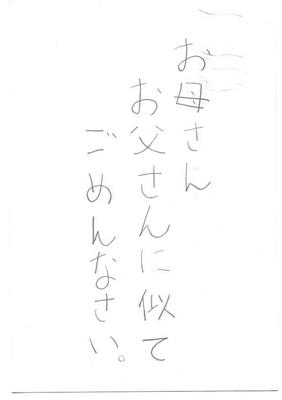 お母さん
お父さんに似て
ごめんなさい。